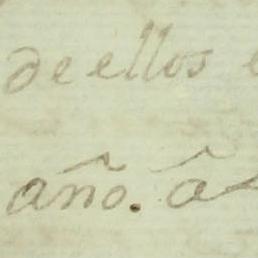 de ellos
año. â